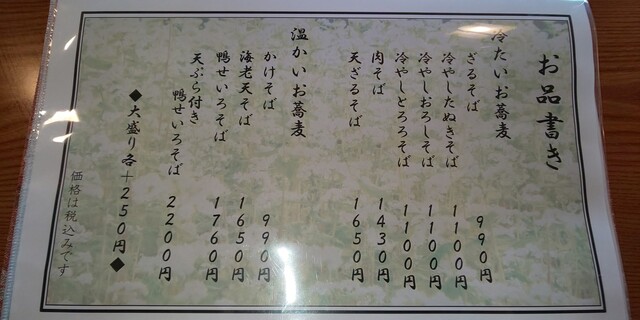 お品書き
冷たいお蕎麦
ざるそば 990円
冷やしたぬきそば 1100円
冷やしおろしそば 1100円
冷やしとろろそば 1100円
肉そば 1430円
天ざるそば 1650円
温かいお蕎麦
かけそば 990円
海老天そば 1650円
鴨せいろそば 1760円
天ぷら付き
鴨せいろそば 2200円
◆大盛り各+250円◆
価格は税込みです